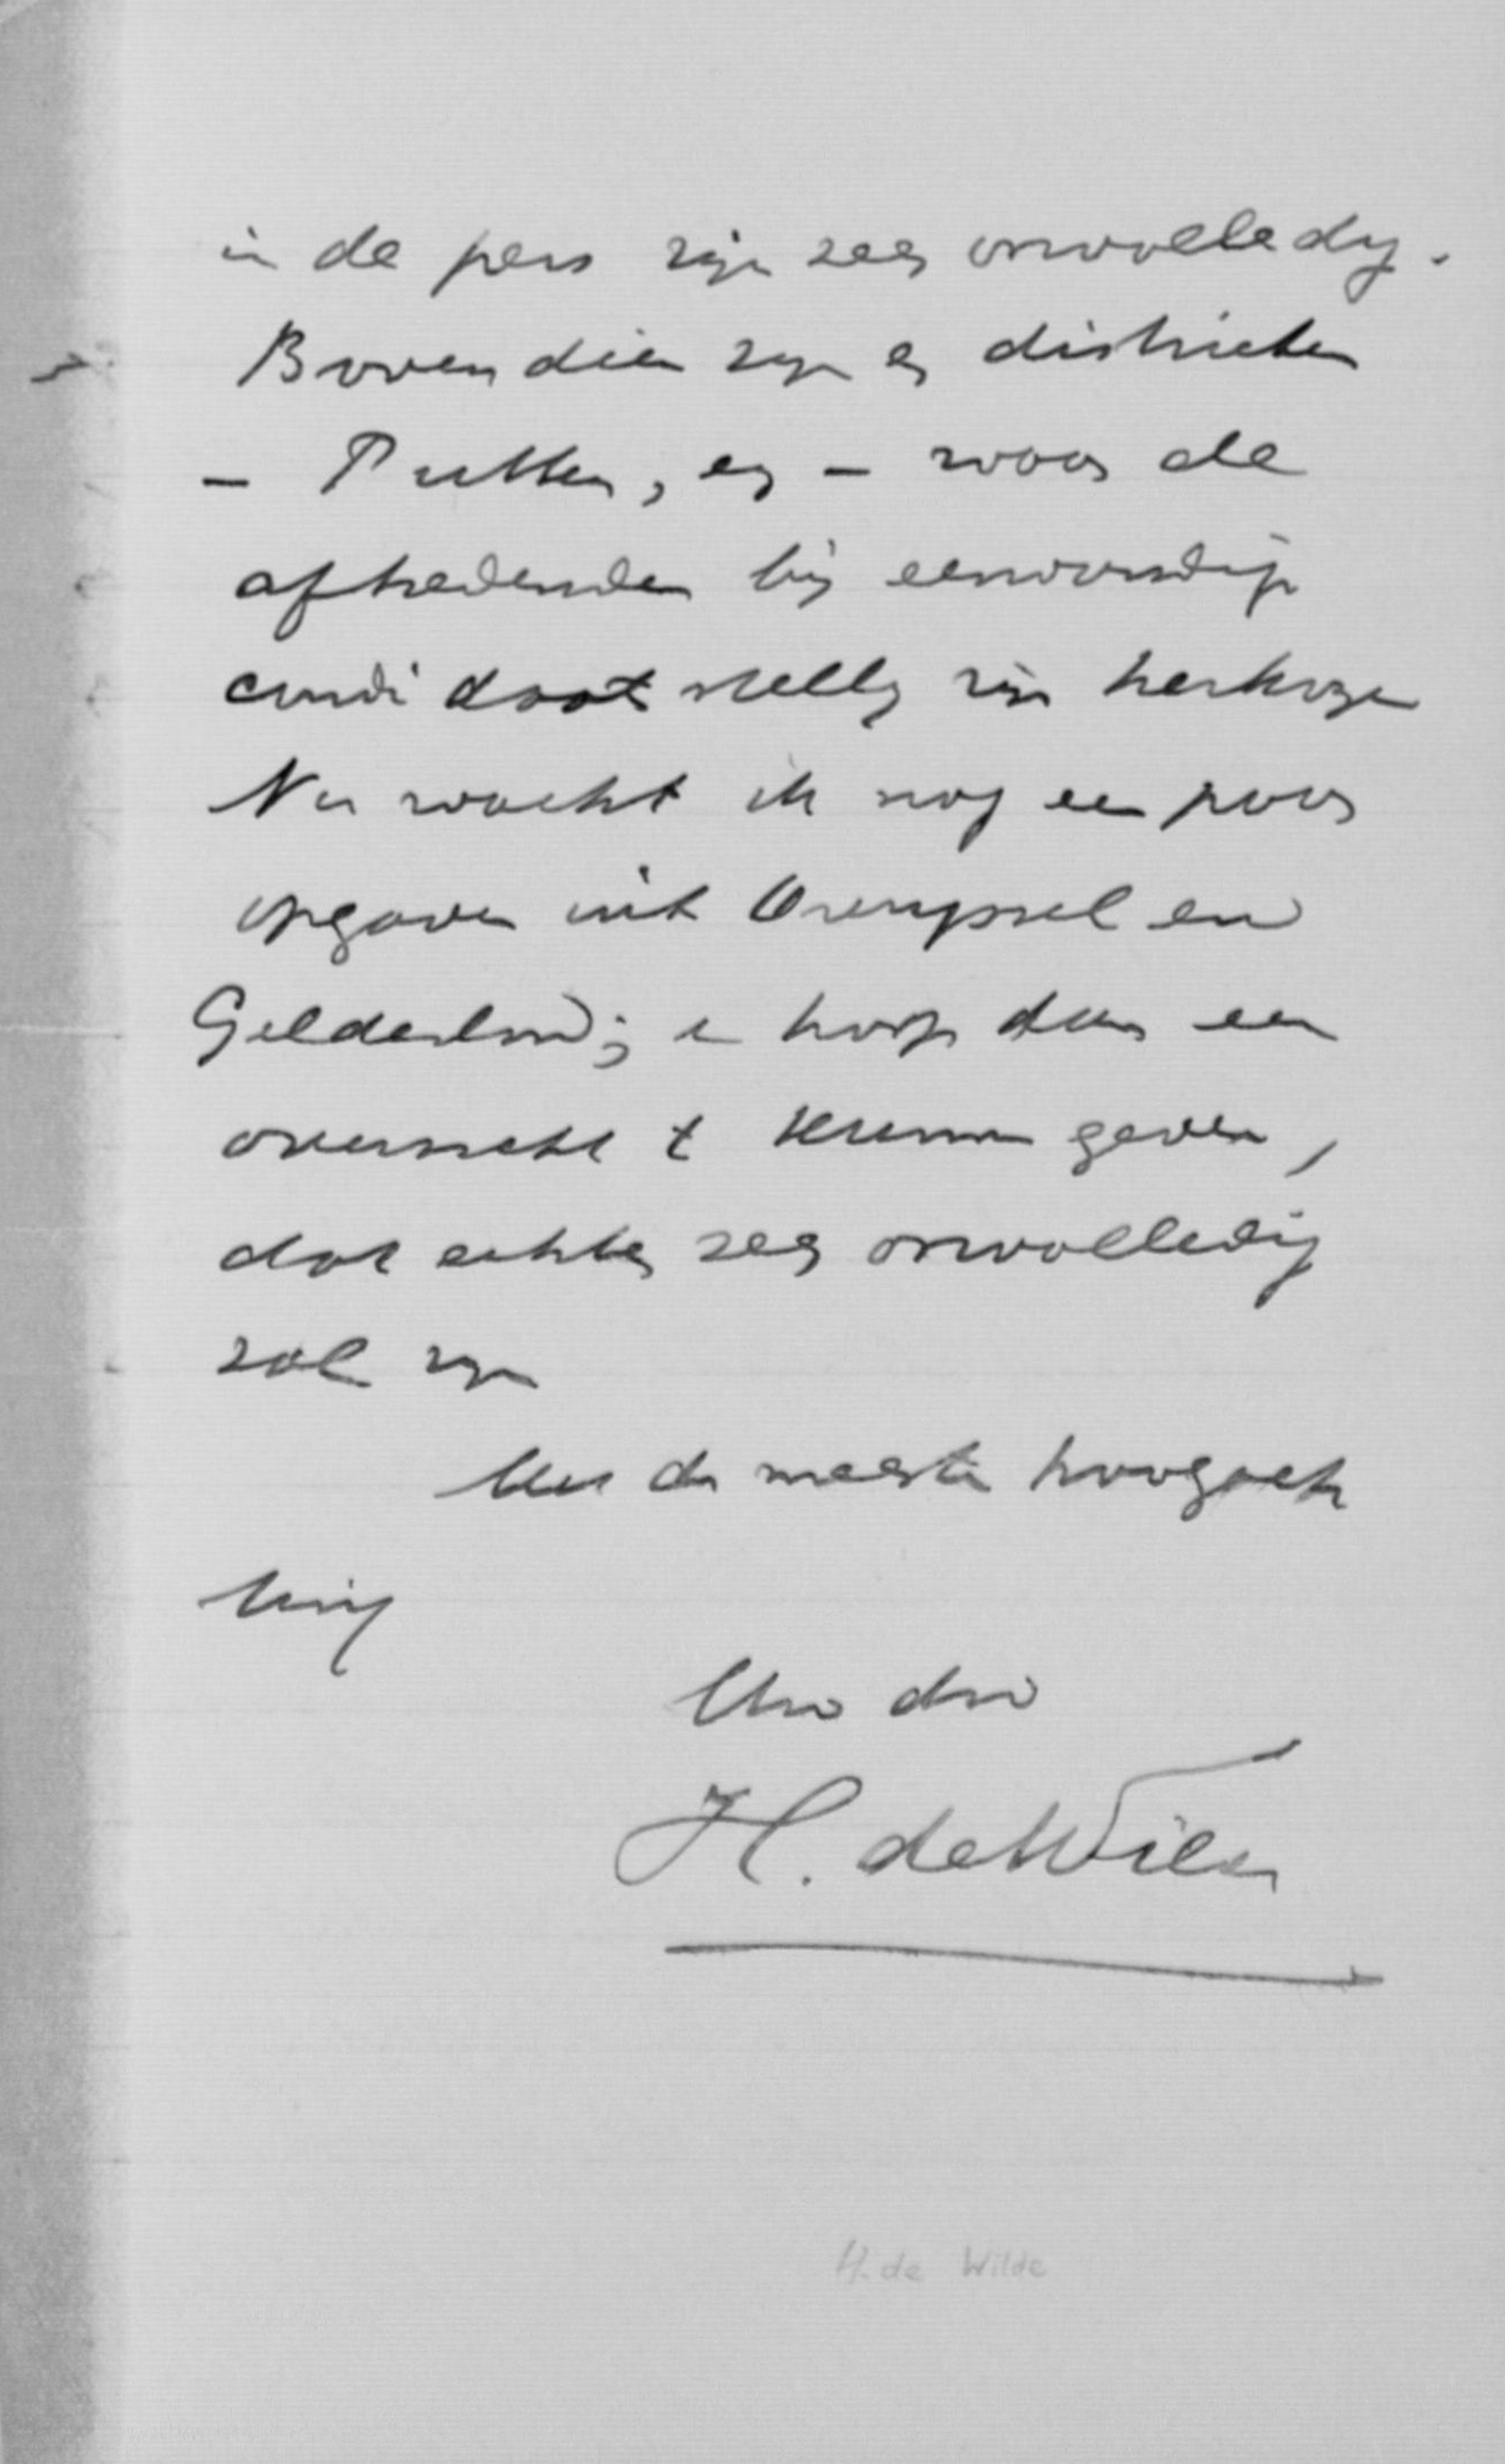 in de pers zijn zeer onvolledig.
Bovendien zijn er districten
- Putten, eg - waar de
aftredenden bij eenvoudige
candidaatstelling zijn herkozen
Nu wacht ik nog een paar
opgaven uit Overijssel en
Gelderland; en hoop dan een
overzicht te kunnen geven,
dat echter zeer onvolledig
zal zijn
Met de meeste hoogach
ting
Uw dw
H. de Wilde
H. de Wilde